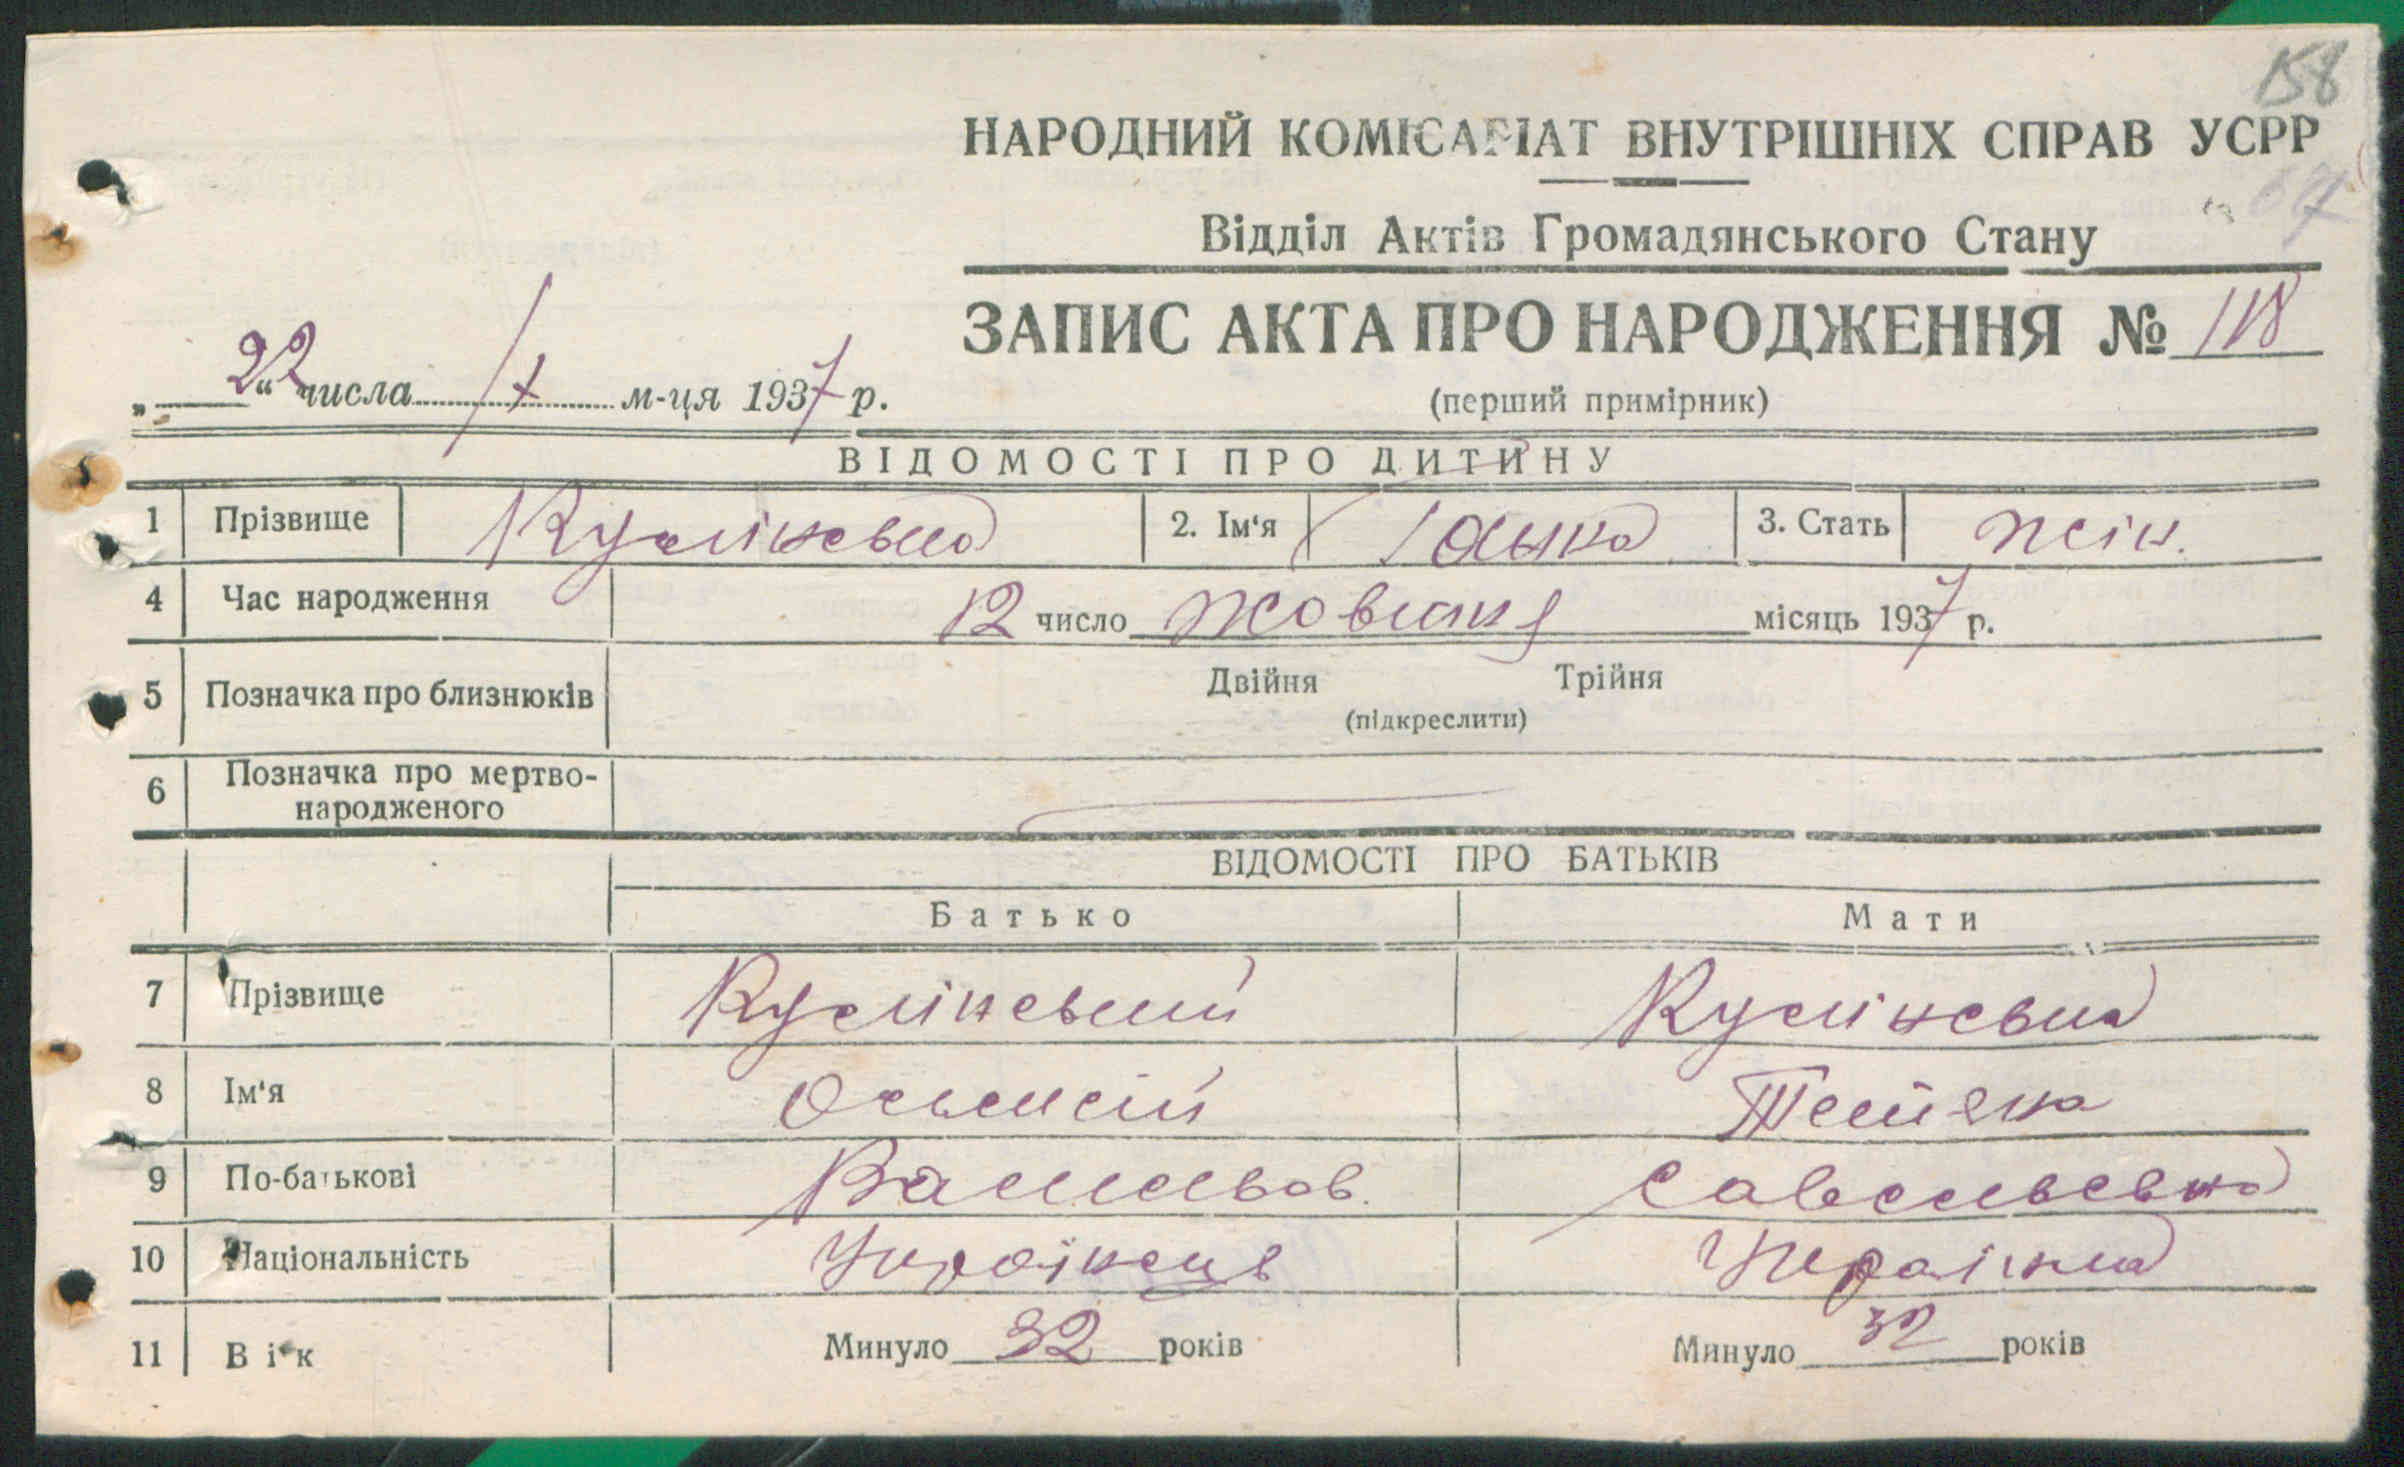 158
НАРОДНИЙ КОМІСАРІАТ ВНУТРІШНІХ СПРАВ УСРР
67
Відділ Актів Громадянського Стану
ЗАПИС АКТА ПРО НАРОДЖЕННЯ № 118
„22“ числа м-ця 1937 р.
(перший примірник)
ВІДОМОСТІ ПРО ДИТИНУ
1 Прізвище 2. Ім‘я 3. Стать жін.
4 Час народження 12 число жовтня місяць 1937 р.
5 Позначка про близнюків Двійня Трійня
(підкреслити)
6 Позначка про мертво-
народженого
ВІДОМОСТІ ПРО БАТЬКІВ
Батько Мати
7 Прізвище
8 Ім‘я
9 По-батькові Савельевна
10 Національність Українець Українка
11 Вік Минуло 32 років Минуло 32 років